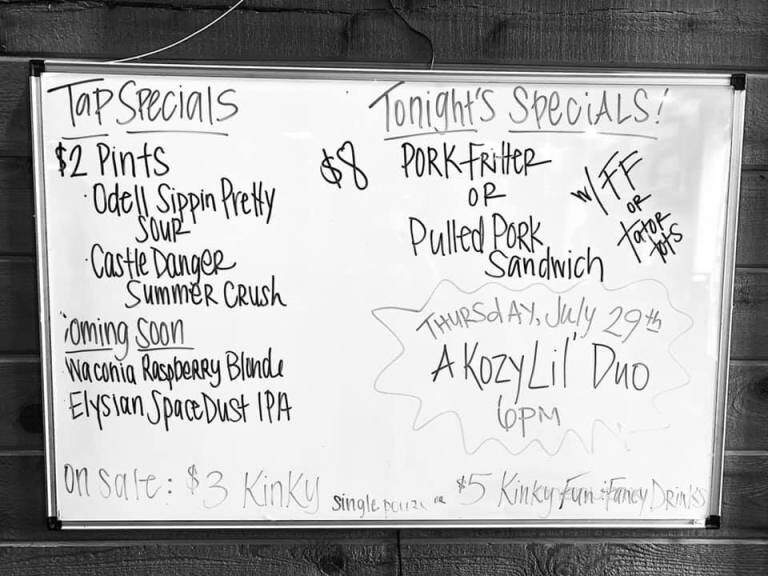 Tap Specials
$2 Pints
· Odell Sippin Pretty
Sour
· Castle Danger
Summer Crush
Coming Soon
Waconia Raspberry Blonde
Elysian Space Dust IPA
Tonight's Specials!
$8 Pork Fritter
or
Pulled Pork
Sandwich
w/ FF
or
tator
tots
Thursday, July 29th
A Kozy Lil' Duo
6pm
On Sale: $3 Kinky Single or $5 Kinky Fun & Fancy Drinks